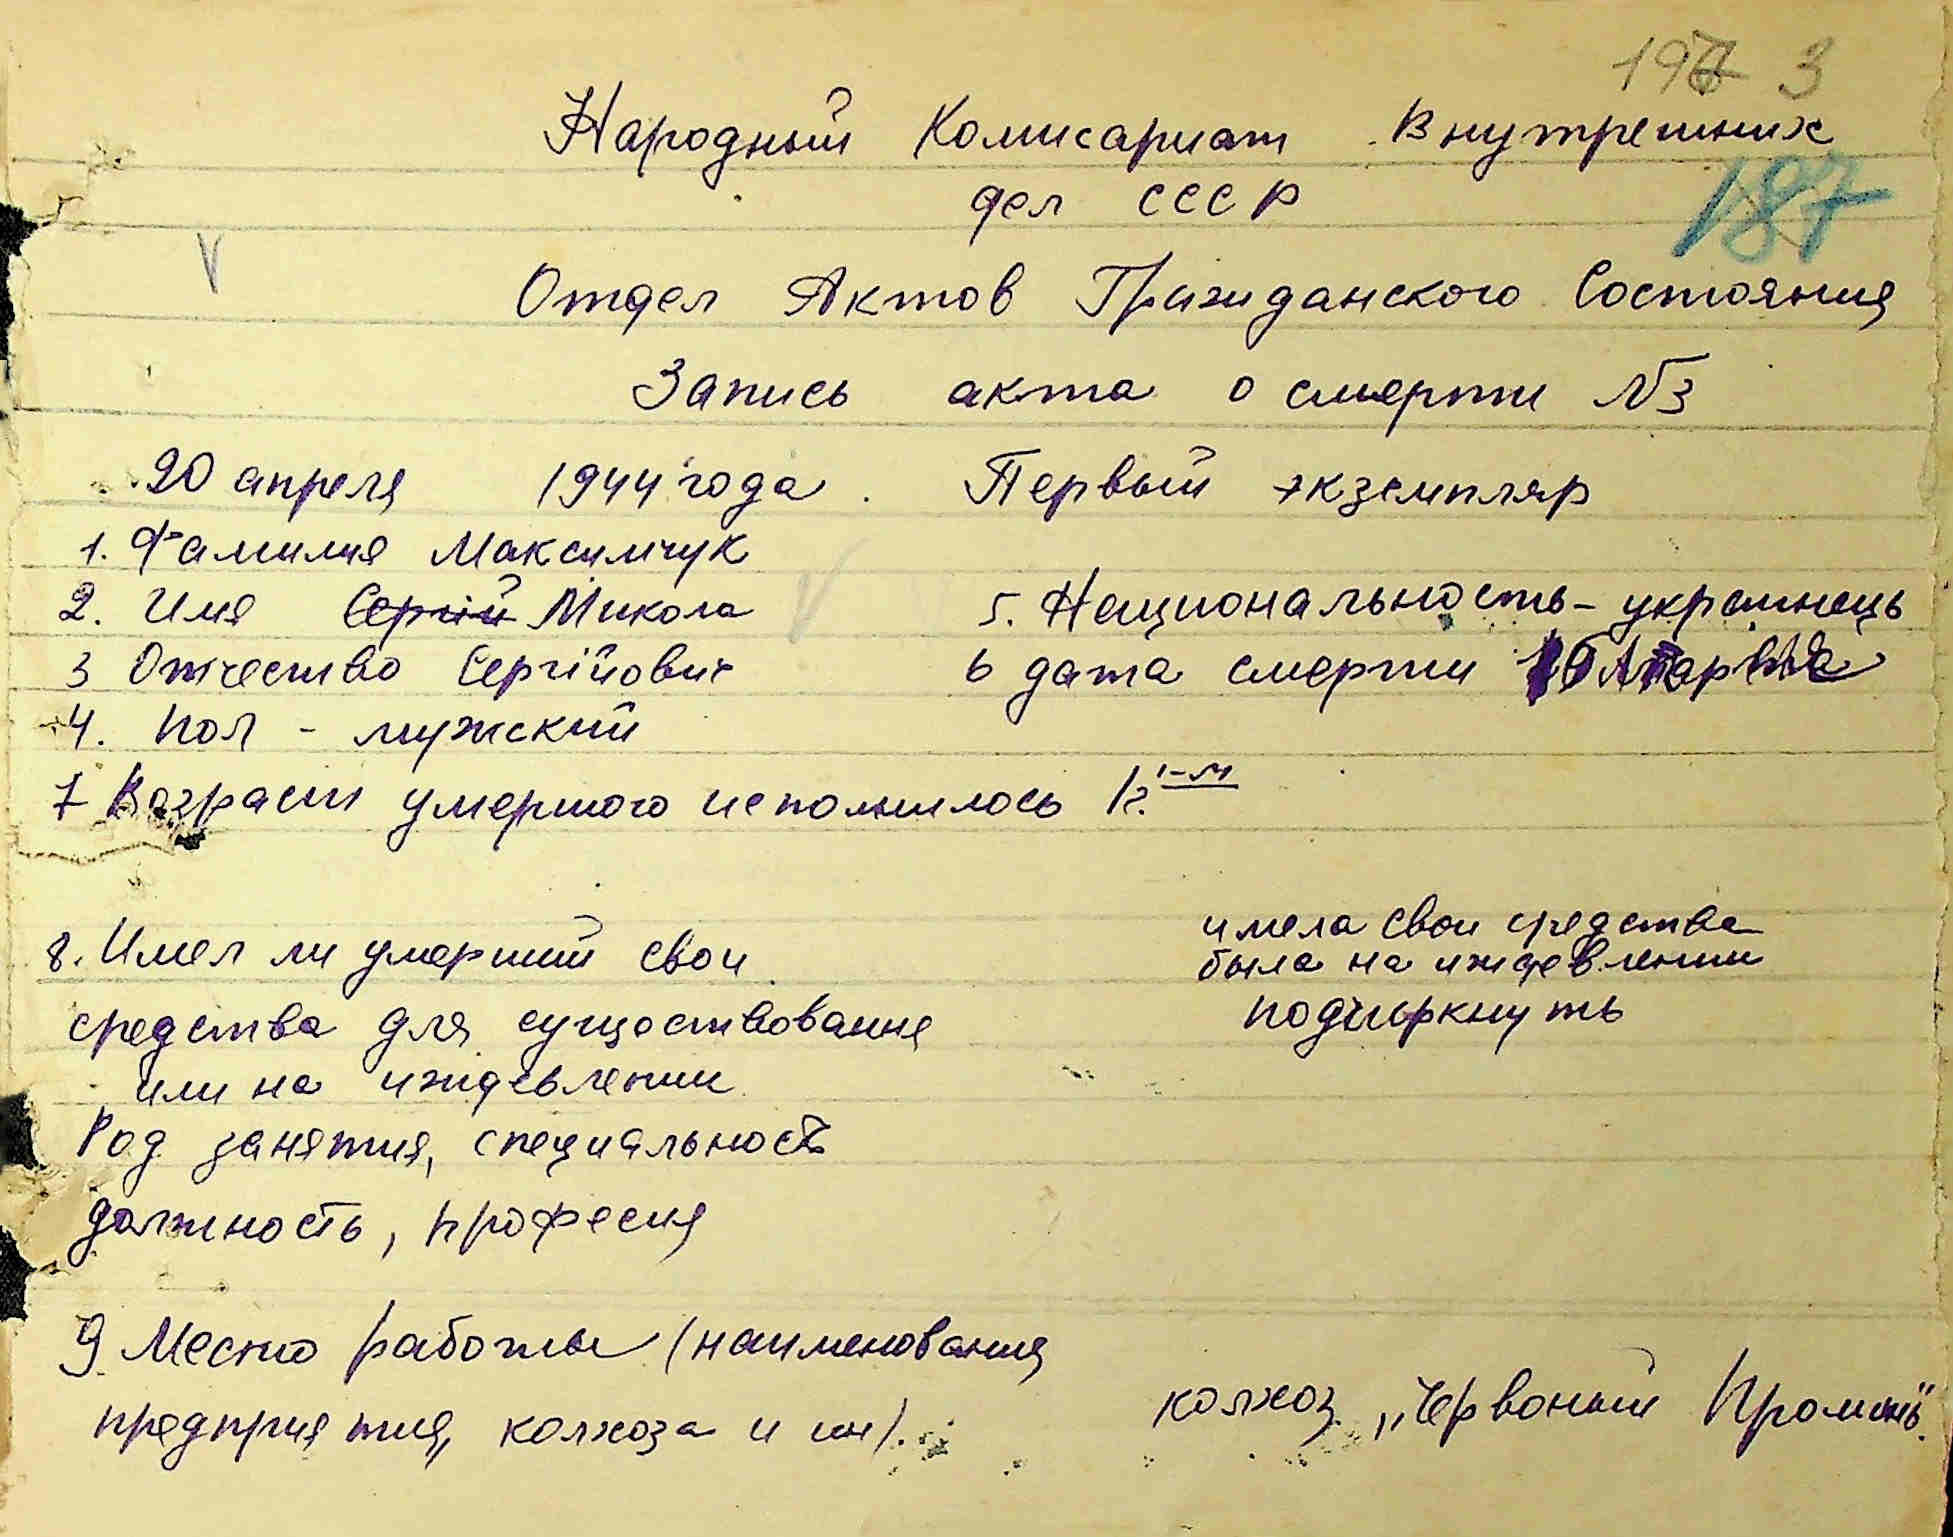 3
187
Народный Комисариат Внутрешних
дел СССР
Отдел Актов Гражданского Состояния
Запись акта о смерти №3
20 апреля 1944 года. Первый экземпляр
1. Фамилия Максимчук
2. Имя Сергій Микола
5. Национальность - украинець
3 Отчество Сергійович
6 дата смерти
4. Пол - мужский
7 Возраст умершого исполнилось 1г. 1-м
8. Имел ли умерший свои
имела свои средства
была на иждевлении
средства для существование
подчиркнуть
или на иждевлении
Род занятия, специальность
должность, професия
9 Место работы (наименования
предприятия, колхоза и ин).
колхоз „Червоный Проминь".